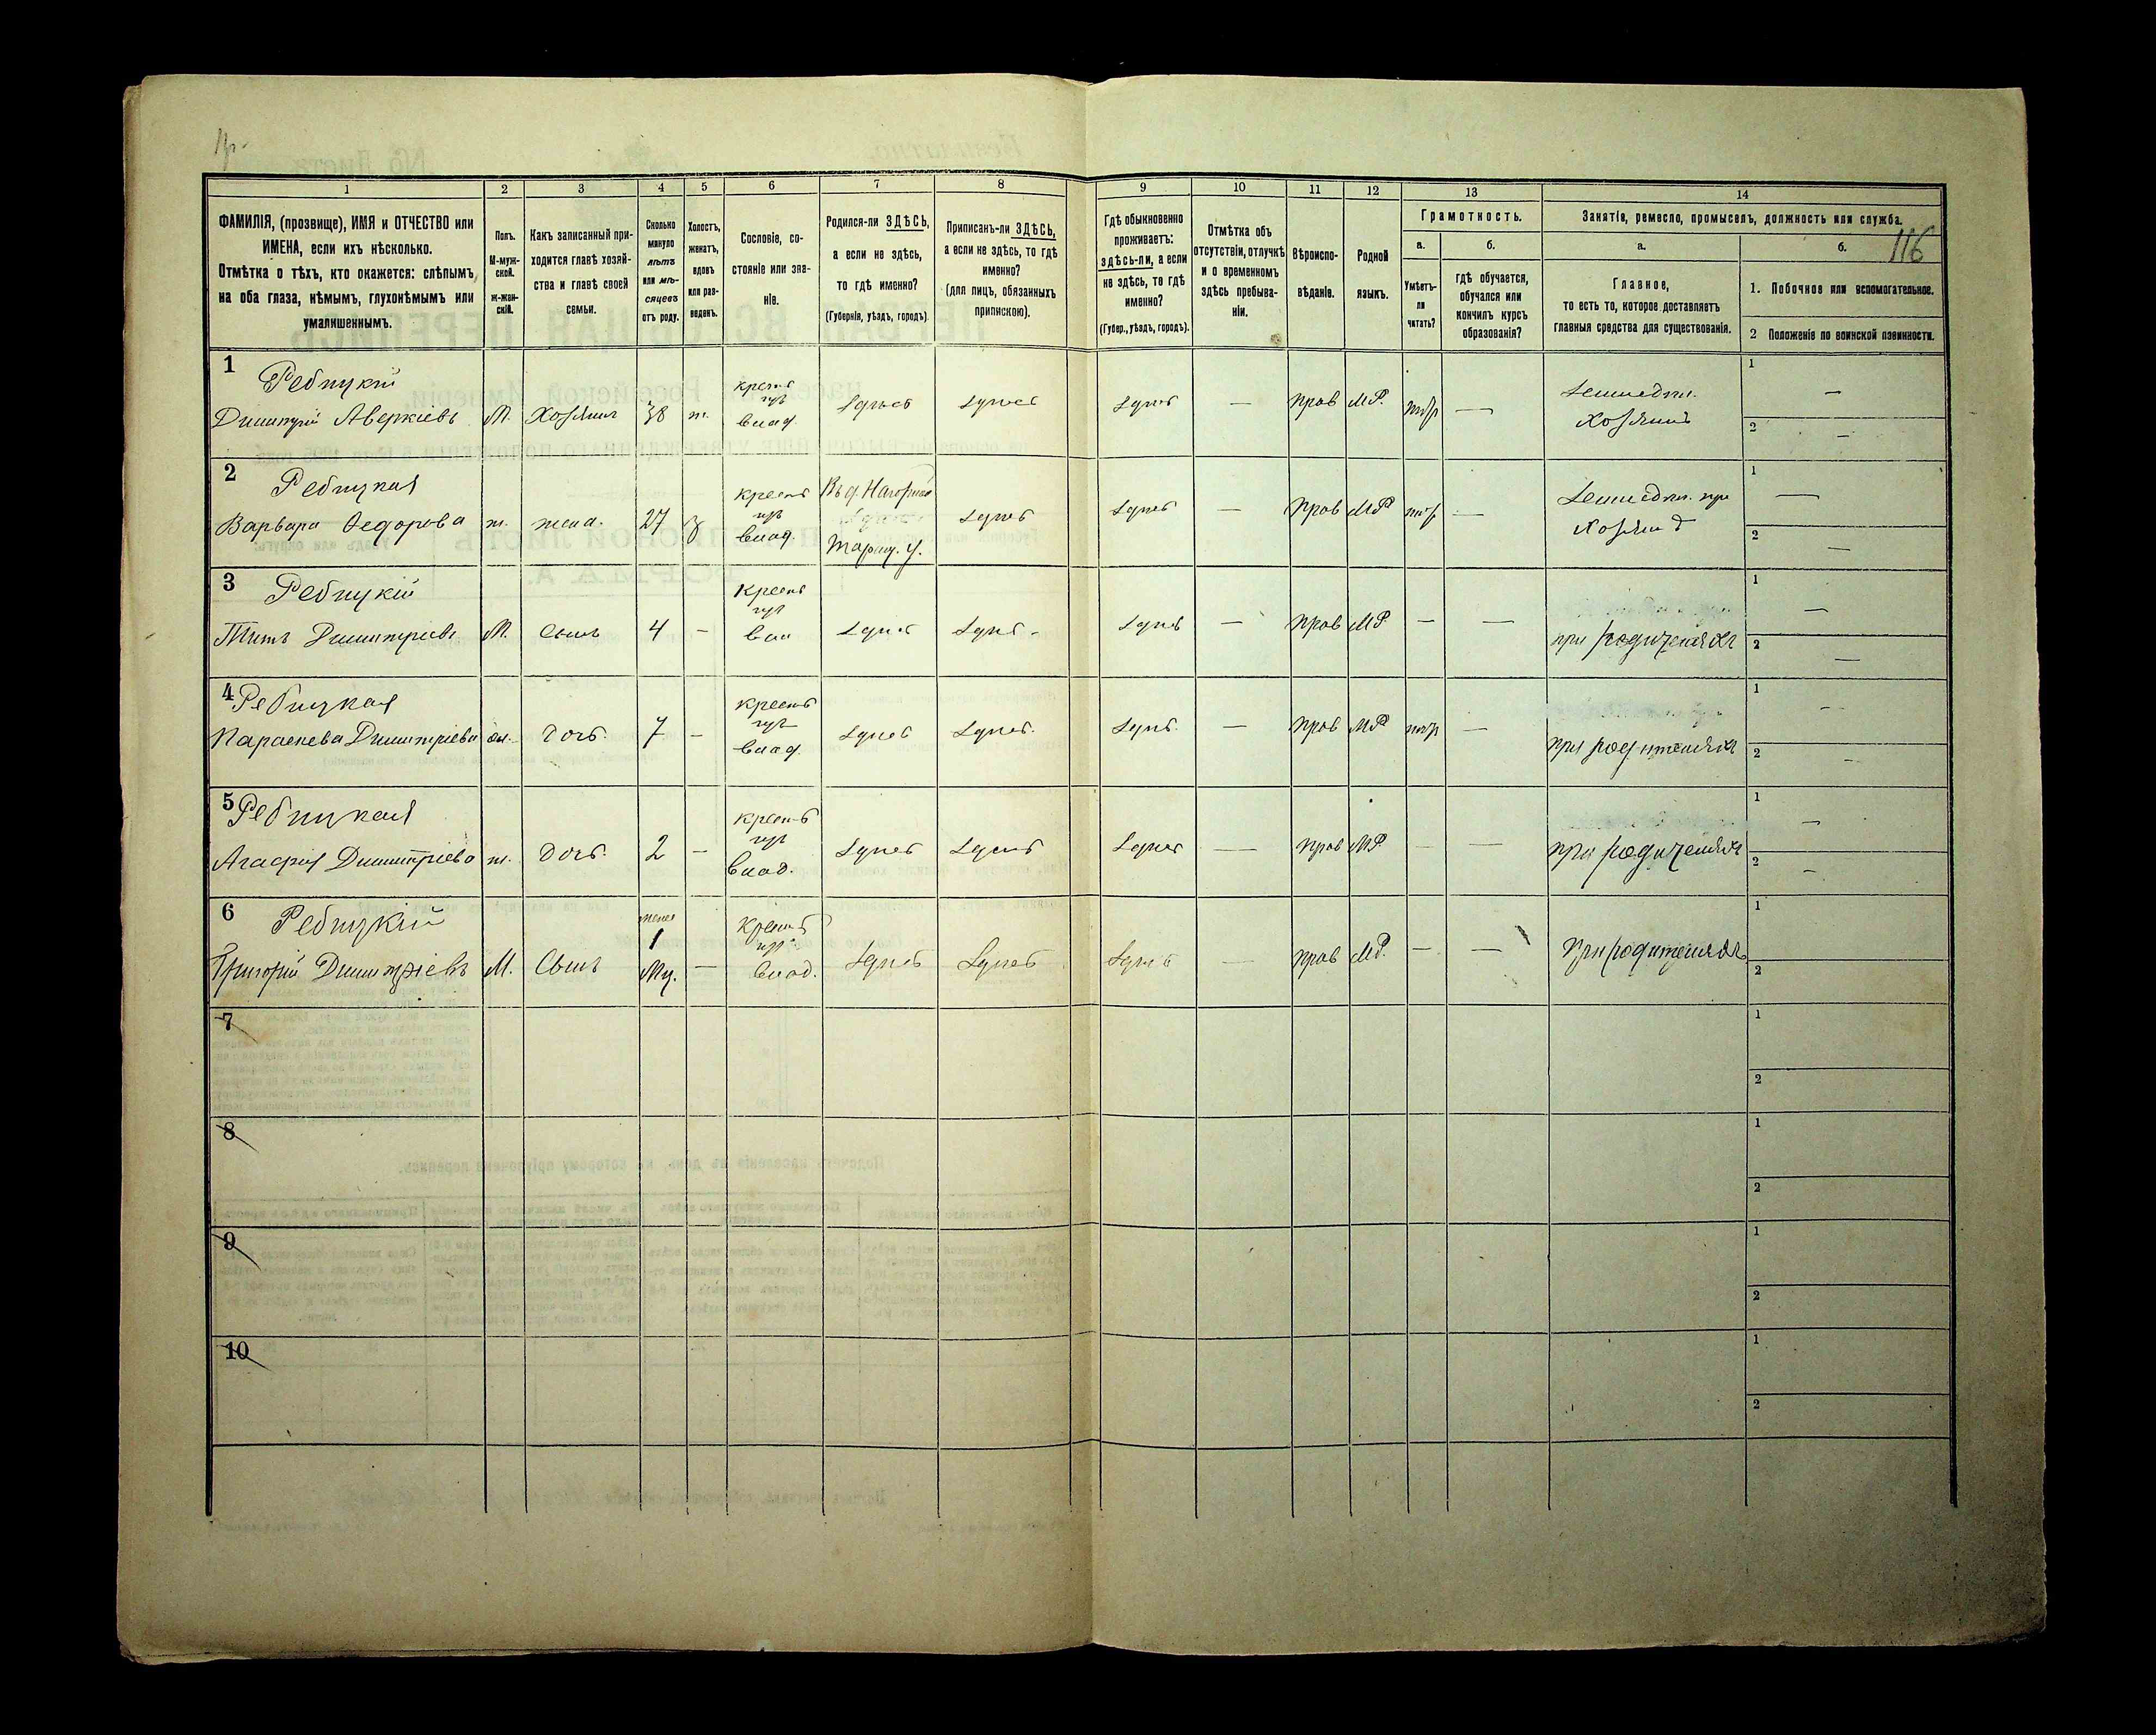 1 2 3 4 5 6 7 8 9 10 11 12 13 14
ФАМИЛІЯ, (прозвище), ИМЯ и ОТЧЕСТВО или
ИМЕНА, если ихъ нѣсколько.
Отмѣтка о тѣхъ, кто окажется: слѣпымъ
на оба глаза, нѣмымъ, глухонѣмымъ или
умалишеннымъ.
Полъ.
М-муж-
ской.
ж-жен-
скій.
Какъ записанный при-
ходится главѣ хозяй-
ства и главѣ своей
семьи.
Сколько
минуло
лѣтъ
или мѣ-
сяцевъ
отъ роду.
Холостъ,
женатъ,
вдовъ
или раз-
веденъ.
Сословіе, со-
стояніе или зва-
ніе.
Родился-ли ЗДѢСЬ,
а если не здѣсь,
то гдѣ именно?
(Губернія, уѣздъ, городъ)
Приписанъ-ли ЗДѢСЬ,
а если не здѣсь, то гдѣ
именно?
(для лицъ, обязанныхъ
припискою).
Гдѣ обыкновенно
проживаетъ:
здѣсь-ли, а если
не здѣсь, то гдѣ
именно?
(Губер., уѣздъ, городъ).
Отмѣтка объ
отсутствіи, отлучкѣ
и о временномъ
здѣсь пребыва-
ніи.
Вѣроиспо-
вѣданіе.
Родной
языкъ.
Грамотность.
а.
Умѣетъ-
ли
читать?
б.
гдѣ обучается,
обучался или
кончилъ курсъ
образованія?
Занятіе, ремесло, промыселъ, должность или служба.
116
а.
Главное,
то есть то, которое доставляетъ
главныя средства для существованія.
б.
1. Побочное или вспомогательное.
2 Положеніе по воинской повинности.
1
Ребицкій
Димитрій Аверкіевъ М. Хозяинъ 38 ж. крестъ влад. здѣсь здѣсь здѣсь — прав МР. — Хозяинъ
1 —
2 —
2
Ребицкая
Варвара Федорова ж. жена. 27 з крестъ влад. здѣсь здѣсь — прав МР — Хозяинѣ
1 —
2 —
3
Ребицкій
Титъ Димитріевъ М. Сынъ 4 — крестъ здѣсь здѣсь здѣсь — прав МР — — при родителяхъ
1 —
2 —
4
Ребицкая
Параскева Димитріева ж. Дочь. 7 — крестъ влад. здѣсь здѣсь. здѣсь. — прав МР — при родителяхъ
1 —
2 —
5
Ребицкая
Агафія Димитріева ж. Дочь. 2 — крестъ влад. здѣсь здѣсь здѣсь — прав МР — — при родителяхъ
1 —
2 —
6
Ребицкій
Григорій Димитріевъ М. Сынъ менѣе 1 мц. — крестъ влад. здѣсь здѣсь здѣсь — прав МР. — — при родителяхъ
1
2
7
1
2
8
1
2
9
1
2
10
1
2